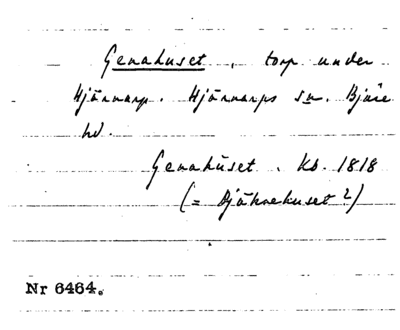 Genahuset, torp under
Hjärnarp. Hjärnarps sn. Bjäre
hd.
Genahuset. Kb. 1818
(= Djäknehuset?)
Nr 6464.